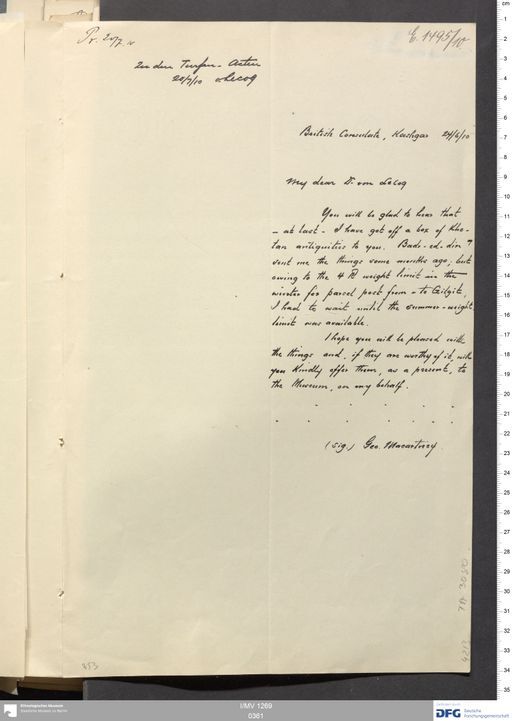 Pr. 20/7 10
E. 1495/10
Zu den Turfan-Acten
20/7/10 v Lecoq
British Consulate, Kashgar 24/6/10
My dear Dr. von LeCoq
You will be glad to hear that
- at last - I have got off a box of Kho-
tan antiquities to you. Badr-ed-din
sent me the things some months ago, but
owing to the 4 lb weight limit in the
winter for parcel post from - to Gilgit,
I had to wait until the summer-weight
limit was available.
I hope you will be pleased with
the things and, if they are worthy of it, will
you kindly offer them, as a present, to
the Museum, on my behalf.
. . . . . .
. . . . . . .
(sig.) Geo. Macartney
TA 3080
4213
353
Ethnologisches Museum
Staatliche Museen zu Berlin
I/MV 1269
0361
DFG Deutsche
Forschungsgemeinschaft
cm
1
2
3
4
5
6
7
8
9
10
11
12
13
14
15
16
17
18
19
20
21
22
23
24
25
26
27
28
29
30
31
32
33
34
35